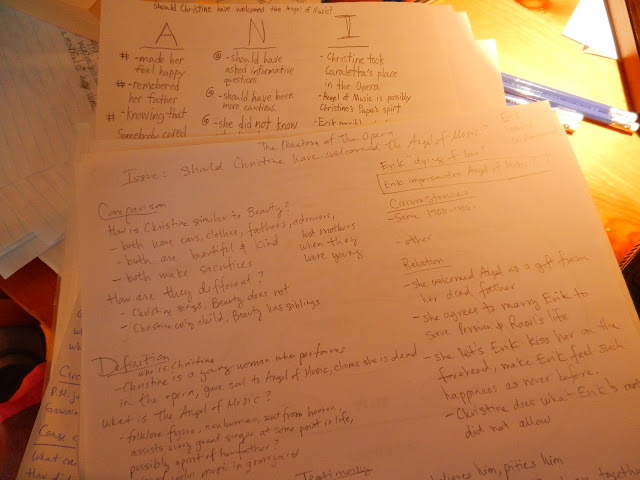 Should Christine have welcomed the Angel of Music?
A
N
I
# -made her
feel happy
# -remebered
her father
# -knowing that
Somebody cared
@ -should have
asked informative
questions
@ -should have been
more cautious.
@ -she did not know
- Christine took
Caraletta's place
in the Opera
-Angel of Music is possibly
Christine's Papa's spirt
The Phantom of the Opera
Issue: Should Christine have welcomed the Angel of Music?
Comparison
How is Christine similar to Beauty?
- both have ears, clothes, fathers, admirers,
lost mothers
when they
were young
- both are beautiful & kind
- both make sacrifices
How are they different?
- Christine sings, Beauty does not
- Christine only child, Beauty has siblings
Definition
who is Christine
- Christine is a young woman who performs
in the opera, gave soul to Angel of Music, claims she is dead
What is the Angel of Music?
- folklore figure, nonhuman, sent from heaven,
assists every great singer at some point in life,
possibly spirit of her father?
violin music in graveyard
Erik "dying of love"
Erik impersonates Angel of Music?
Circumstances
- some 1700-1800.
- other
Relation
- she welcomed Angel as a gift from
her dead father
- she agrees to marry Erik to
save Persian & Raoul's life
- she let's Erik kiss her on the
forehead, make Erik feel such
happiness as never before.
- Christine does what Erik's mom
did not allow
Testimony
believes him, pities him
together
Cause
What